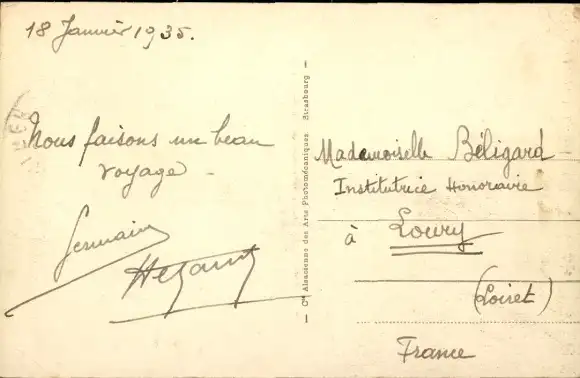 18 Janvier 1935.
Nous faisons un beau
voyage -
Germain
Cie Alsacienne des Arts Photomécaniques Strasbourg
Mademoiselle Béligard
Institutrice Honoraire
à Loury
(Loiret)
France